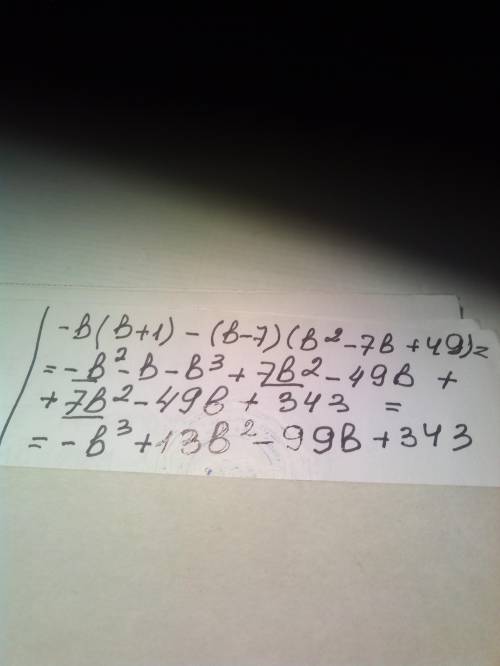 -в(в+1) - (в-7)(в²-7в+49)=
= -в²-в-в³+7в²-49в +
+ 7в²-49в + 343 =
= -в³+13в²-99в+343